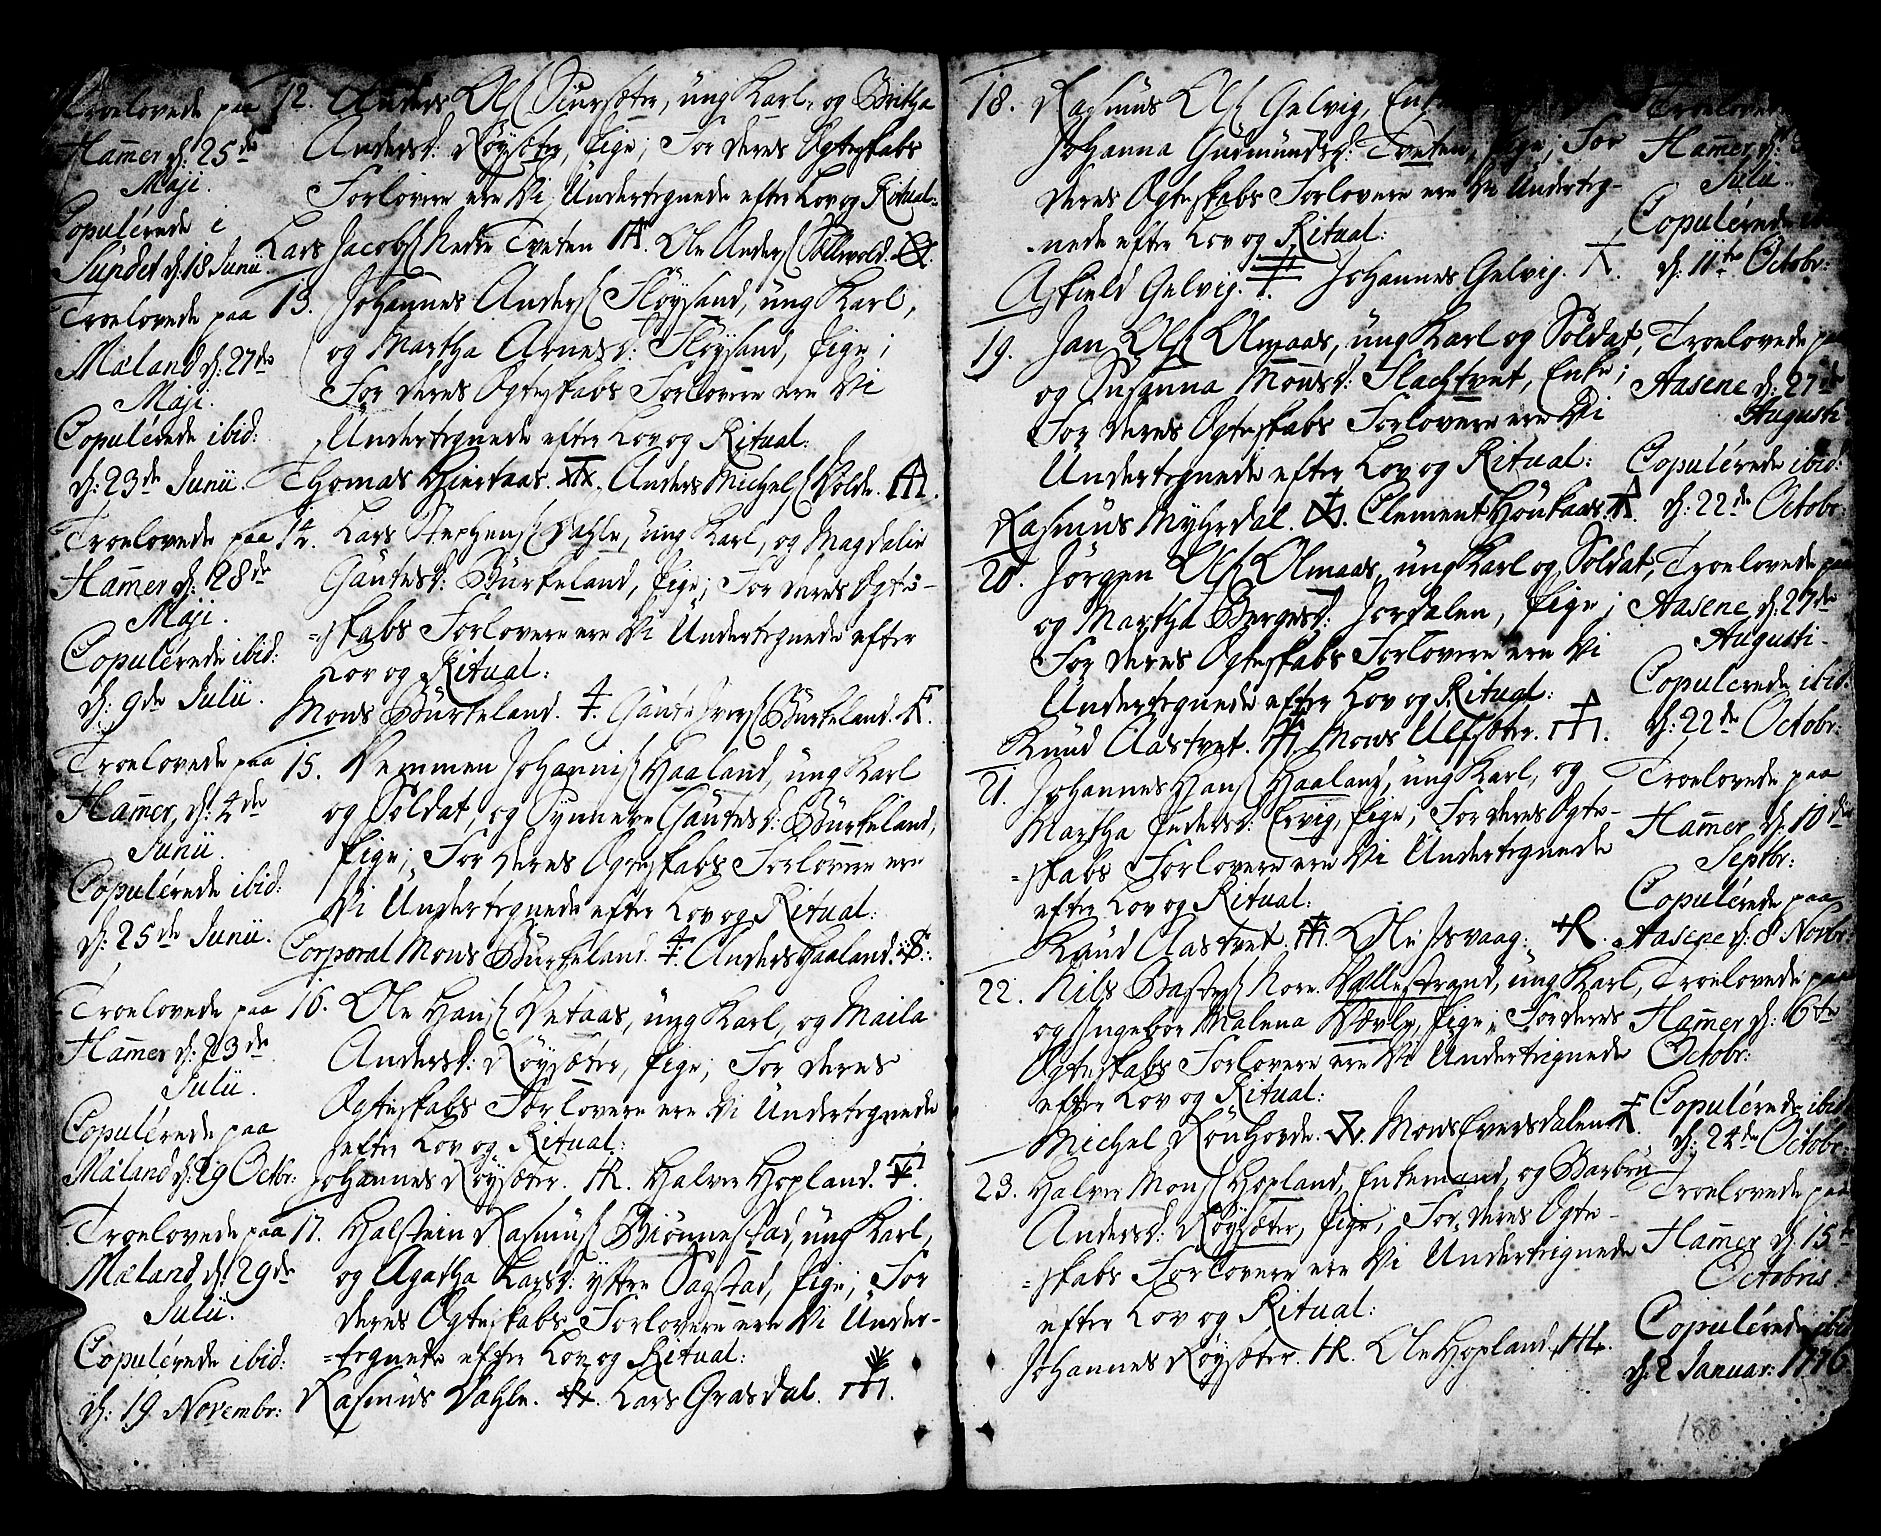 Troelovede paa
Hamer d: 25de
Maji.
Copulérede i
Sundet d: 18 Junii.
12. Anders Ols Sursæter, ung Karl, og Britha
Andersd: Røysæter, Pige; For deres Ægteskabs
Forlovere ere Vi Undertegnede efter Lov og Ritual:
Lars Jacobs Nedre Tveten Ole Anders
Troelovede paa
Mæland d: 27de
Maji.
Copulérede ibid:
d: 23de Junii.
13. Johannes Anders Fløysand, ung Karl,
og Martha Arnesd: Fløysand, Pige;
For deres Ægteskabs Forlovere ere Vi
Undertegnede efter Lov og Ritual:
Thomas Hiertaas. Anders Michels Volde.
Troelovede paa
Hamer d: 28de
Maji.
Copulérede ibid:
d: 9de Julii.
14. Lars Stephens Dahle, ung Karl, og Magdalie
Gautesd: Burkeland, Pige; For deres Ægte-
=skabs Forlovere ere Vi Undertegnede efter
Lov og Ritual:
Mons Burkeland. Gaute Burkeland.
Troelovede paa
Hamer, d: 4de
Junii.
Copulérede ibid:
d: 25de Junii.
15. Vemmen Johannis Haaland, ung Karl
og Soldat, og Synneve Gautesd: Burkeland,
Pige; For deres Ægteskabs Forlovere ere
Vi Undertegnede efter Lov og Ritual:
Corporal Mons Burkeland. Anders Haaland.
Troelovede paa
Hamer d: 23de
Julii.
Copulérede paa
Mæland d: 29 Octbr:
16. Ole Hans Vetaas, ung Karl, og Maila
Andersd: Røysæter, Pige; For deres
Ægteskabs Forlovere ere Vi Undertegnede
efter Lov og Ritual:
Johannes Røysæter. Halver Hopland.
Troelovede paa
Mæland, d: 29de
Julii.
Copulérede ibid:
d: 19 Novembr:
17. Halstein Rasmus Biønnestad, ung Karl,
og Agatha Larsd: yttre Sagstad, Pige; For
deres Ægteskabs Forlovere ere Vi Under-
=tegnede efter Lov og Ritual:
Rasmus Dahle. Lars Grasdal.
18. Rasmus Ols Gelvig,
Johanna Gudmundsd: Tveten, Pige; For
deres Ægteskabs Forlovere ere Vi Underteg-
-nede efter Lov og Ritual:
Asfield Gelvig. Johannes Gelvig.
Troelovede
Hamer d:
Julii.
Copulérede
d: 11te Octobr:
19. Jan Ols Olmaas, ung Karl og Soldat,
og Susanna Monsd: Flachtvet, Enke;
For deres Ægteskabs Forlovere ere Vi
Undertegnede efter Lov og Ritual:
Rasmus Myhrdal. Clement Houkaas
Troelovede paa
Aasene d: 27de
Augusti
Copulérede ibid:
d: 22de Octobr:
20. Jørgen Ols Olmaas, ung Karl og Soldat,
og Martha Bergesd: Jordalen, Pige;
For deres Ægteskabs Forlovere ere Vi
Undertegnede efter Lov og Ritual:
Knud Aastvet. Mons Ulfsæter.
Troelovede paa
Aasene d: 27de
Augusti.
Copulerede ibid:
d: 22de Octobr:
21. Johannes Hans Haaland, ung Karl, og
Martha Pedersd: Eevig, Pige; For deres Ægte-
=skabs Forlovere ere Vi Undertegnede
efter Lov og Ritual:
Knud Aastvet. Ole Isvaag:
Troelovede paa
Hamer, d: 10de
Septbr:
Copulérede paa
Aasene d: 8 Novbr:
22. Nils Bastes Nore Vallestrand, ung Karl,
og Ingebor Malena Vævle, Pige; For deres
Ægteskabs Forlovere ere Vi Undertegnede
efter Lov og Ritual:
Michel Rønhovde. Mons Eversdalen
Troelovede paa
Hamer d: 6te
Octobr:
Copulérede ibid
d: 24de Octobr:
23. Halver Mons Hopland, Enkemand, og Barbru
Andersd: Røysæter, Pige; For deres Ægte-
=skabs Forlovere ere Vi Undertegnede
efter Lov og Ritual:
Johannes Røysæter. Ole Hopland.
Troelovede paa
Hamer d: 15de
Octobris:
Copulérede ibid
d: 2 Januar: 1776
188